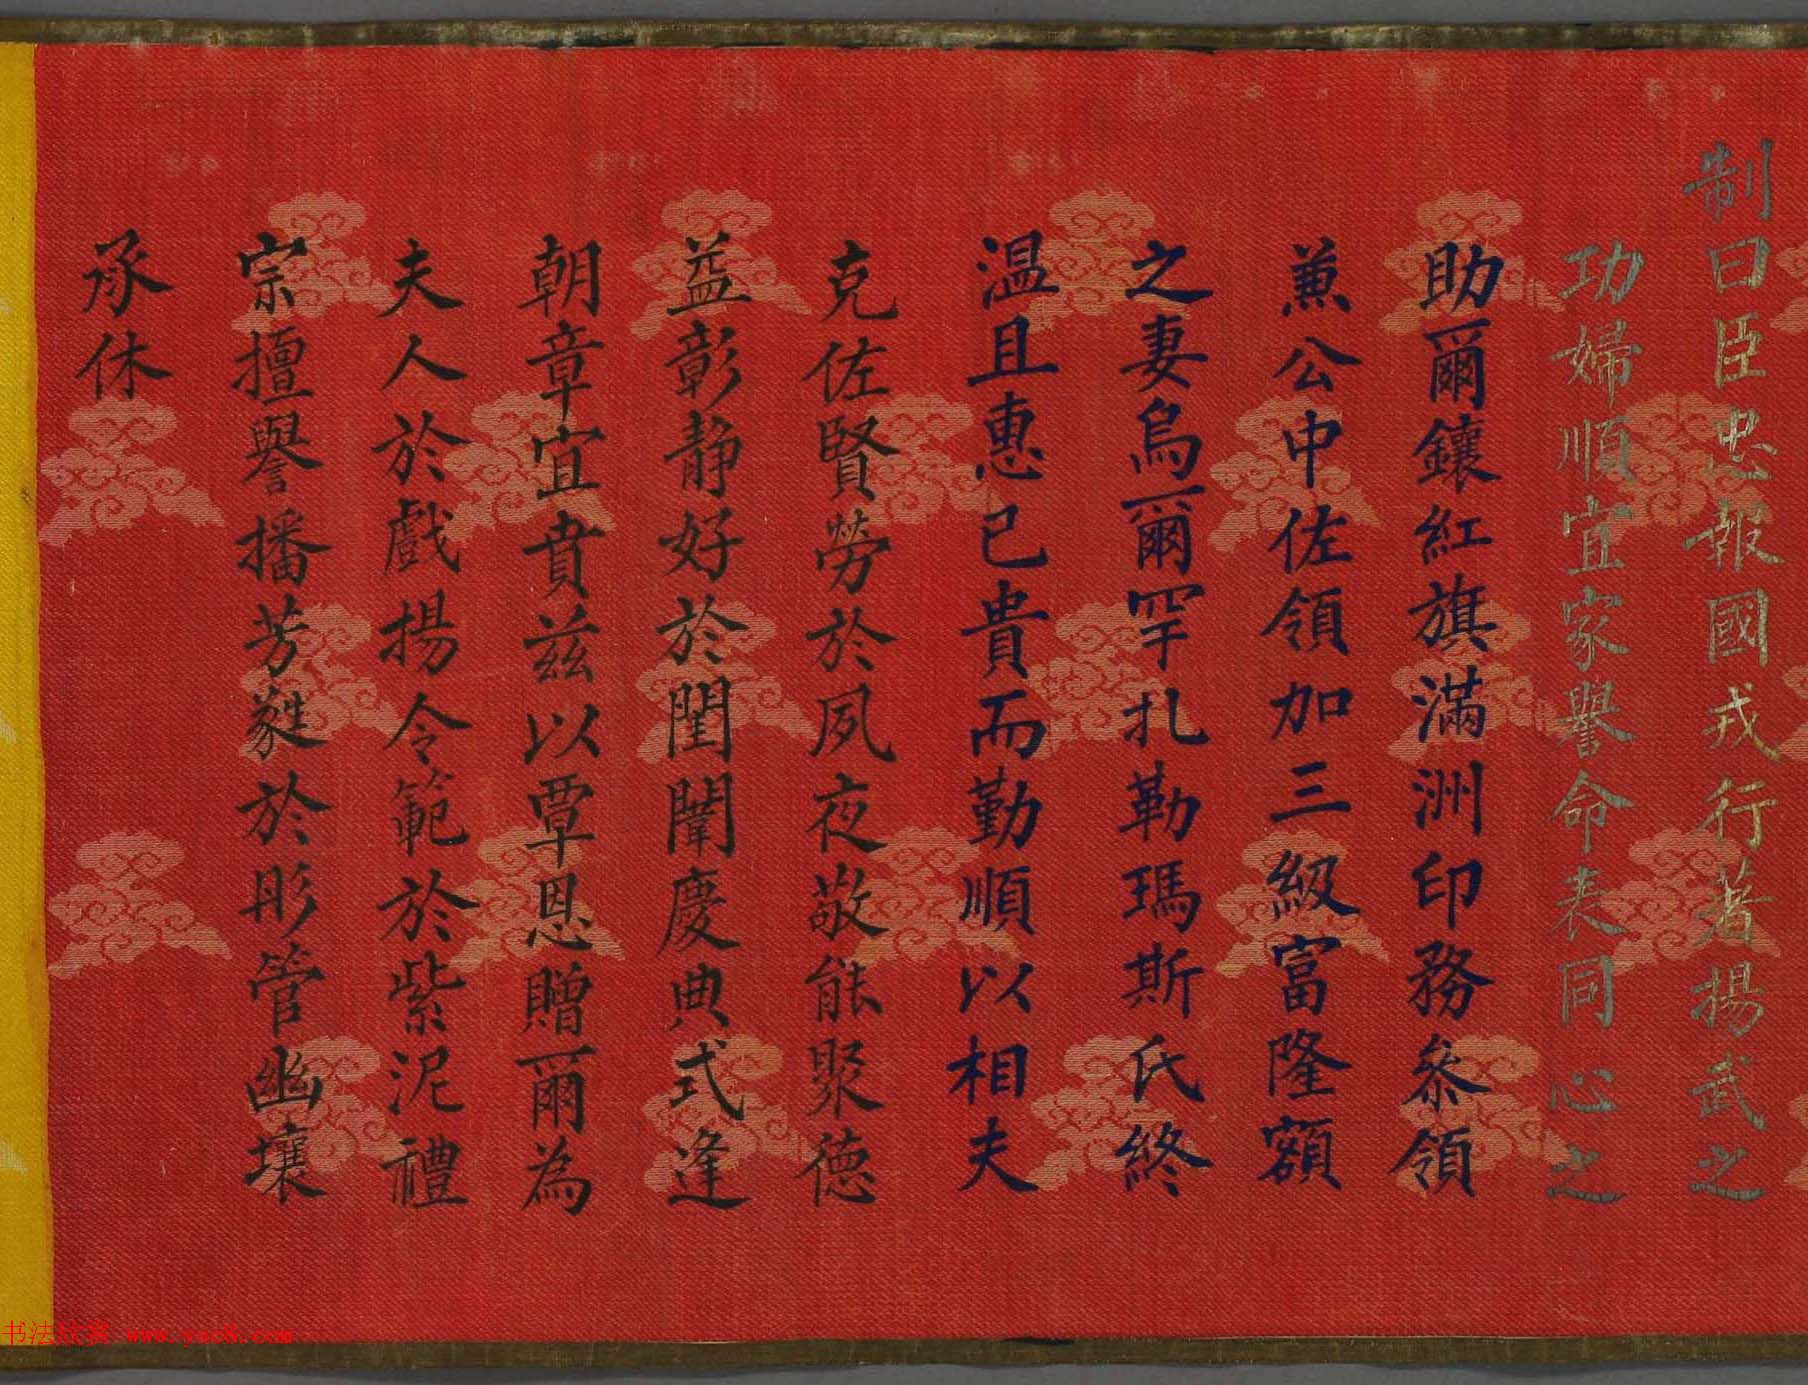 制曰臣忠報國戎行著揚武之
功婦順宜家譽命表同心之
助爾鑲紅旗滿洲印務叅領
兼公中佐領加三級富隆額
之妻烏爾罕扎勒瑪斯氏終
溫且惠已貴而勤順以相夫
克佐賢勞於夙夜敬能聚德
益彰静好於閨闈慶典式逢
朝章宜賁兹以覃恩贈爾為
夫人於戲揚令範於紫泥禮
宗擅譽播芳蕤於彤管幽壤
承休
书法欣赏 www.yac8.com